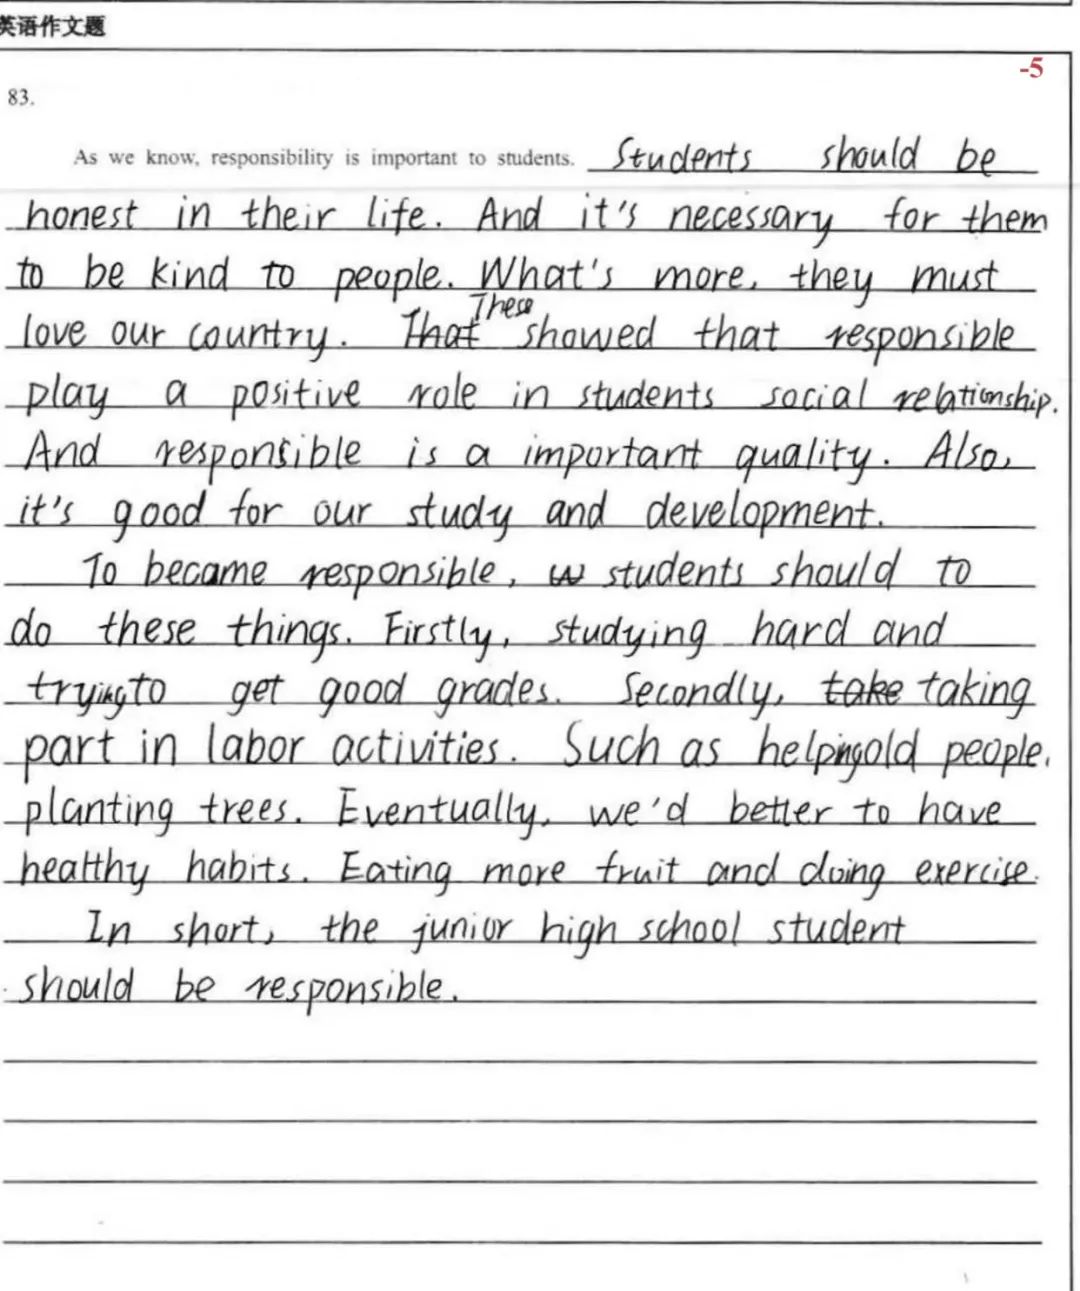 英语作文题
-5
83.
As we know, responsibility is important to students. Students should be
honest in their life. And it's necessary for them
to be kind to people. What's more, they must
love our country. That These showed that responsible
play a positive role in students social relationship.
And responsible is a important quality. Also,
it's good for our study and development.
To became responsible, students should to
do these things. Firstly, studying hard and
trying to get good grades. Secondly, take taking
part in labor activities. Such as helping old people,
planting trees. Eventually, we'd better to have
healthy habits. Eating more fruit and doing exercise.
In short, the junior high school student
should be responsible.